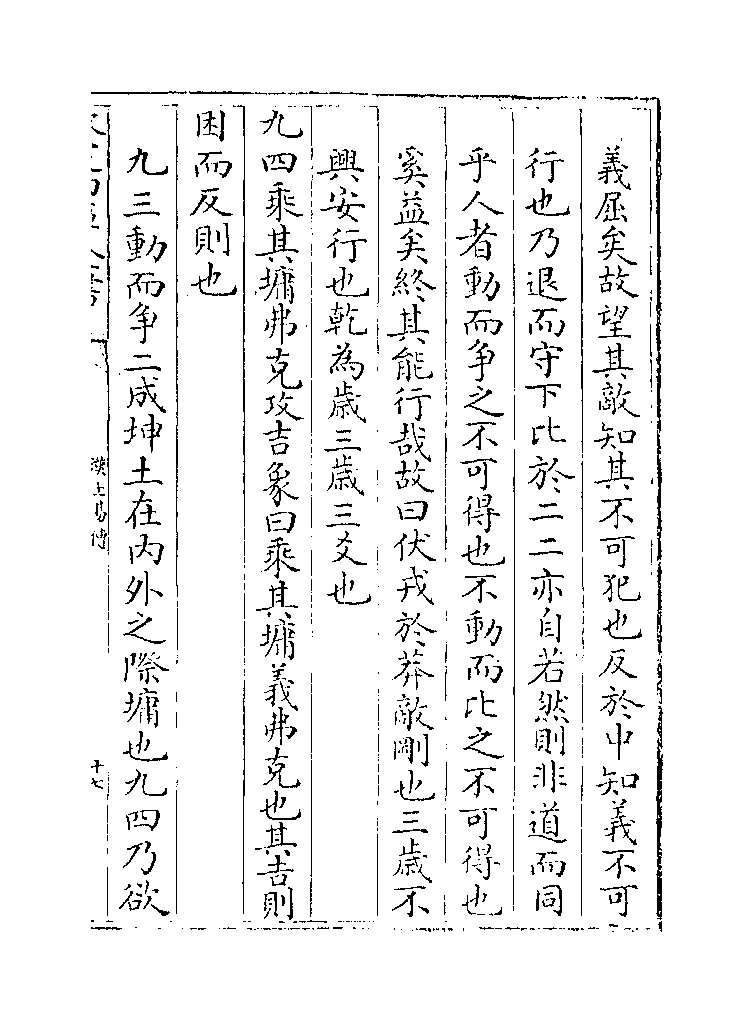 義屈矣故望其敵知其不可犯也反於中知義不可
行也乃退而守下比於二二亦自若然則非道而同
乎人者動而争之不可得也不動而比之不可得也
奚益矣終其能行哉故曰伏戎於莽敵剛也三歳不
興安行也乾為歳三歳三爻也
九四乘其墉弗克攻吉象曰乘其墉義弗克也其吉則
困而反則也
九三動而争二成坤土在内外之際墉也九四乃欲
漢上易傳
十七